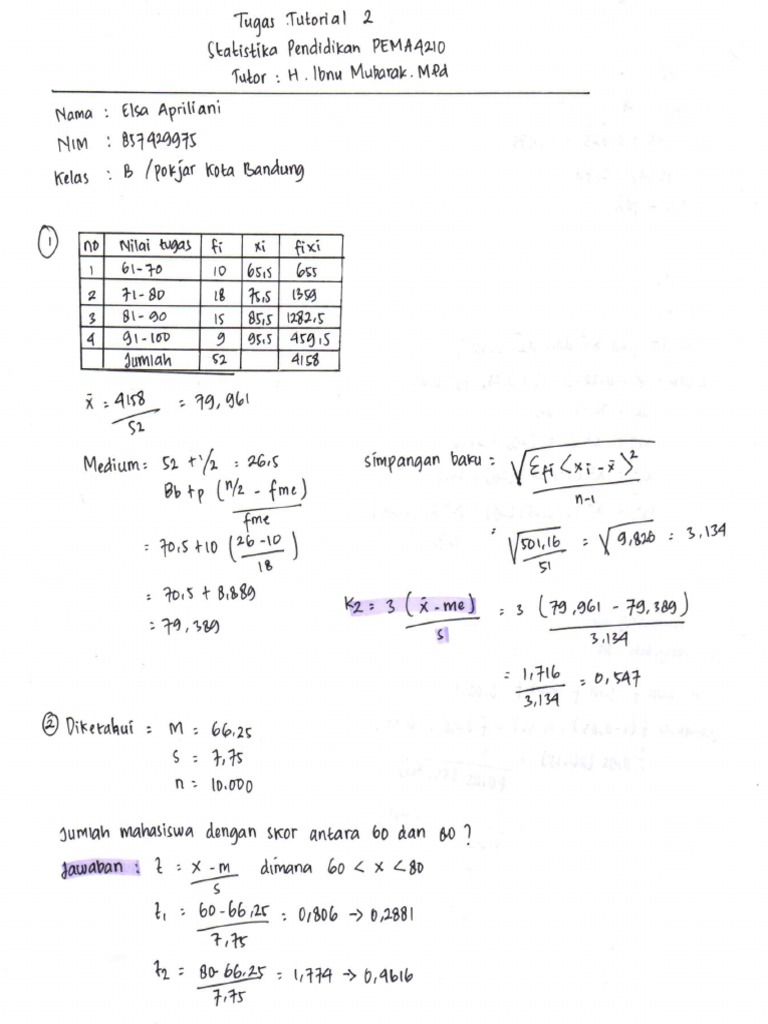 Tugas Tutorial 2
Statistika Pendidikan PEMA4210
Tutor : H. Ibnu Mubarak. MPd
Nama : Elsa Apriliani
NIM : 857429975
Kelas : B / pokjar Kota Bandung
1
no Nilai tugas fi xi fixi
1 61-70 10 65,5 655
2 71-80 18 75,5 1359
3 81-90 15 85,5 1282,5
4 91-100 9 95,5 459,5
Jumlah 52 4158
x̄ = 4158/52 = 79,961
Medium = 52 + 1/2 = 26,5
Bb + p (n/2 - fme)/fme
= 70,5 + 10 (26-10/18)
= 70,5 + 8,889
= 79,389
simpangan baku = √Σfi<xi - x̄>²/n-1
= √501,16/51 = √9,826 = 3,134
K2 = 3 (x̄ - me)/s = 3 (79,961 - 79,389)/3,134
= 1,716/3,134 = 0,547
2 Diketahui = M = 66,25
S = 7,75
n = 10.000
Jumlah mahasiswa dengan skor antara 60 dan 80 ?
Jawaban : z = x - m/s dimana 60 < x < 80
z₁ = 60 - 66,25/7,75 = 0,806 → 0,2881
z₂ = 80 - 66,25/7,75 = 1,774 → 0,4616